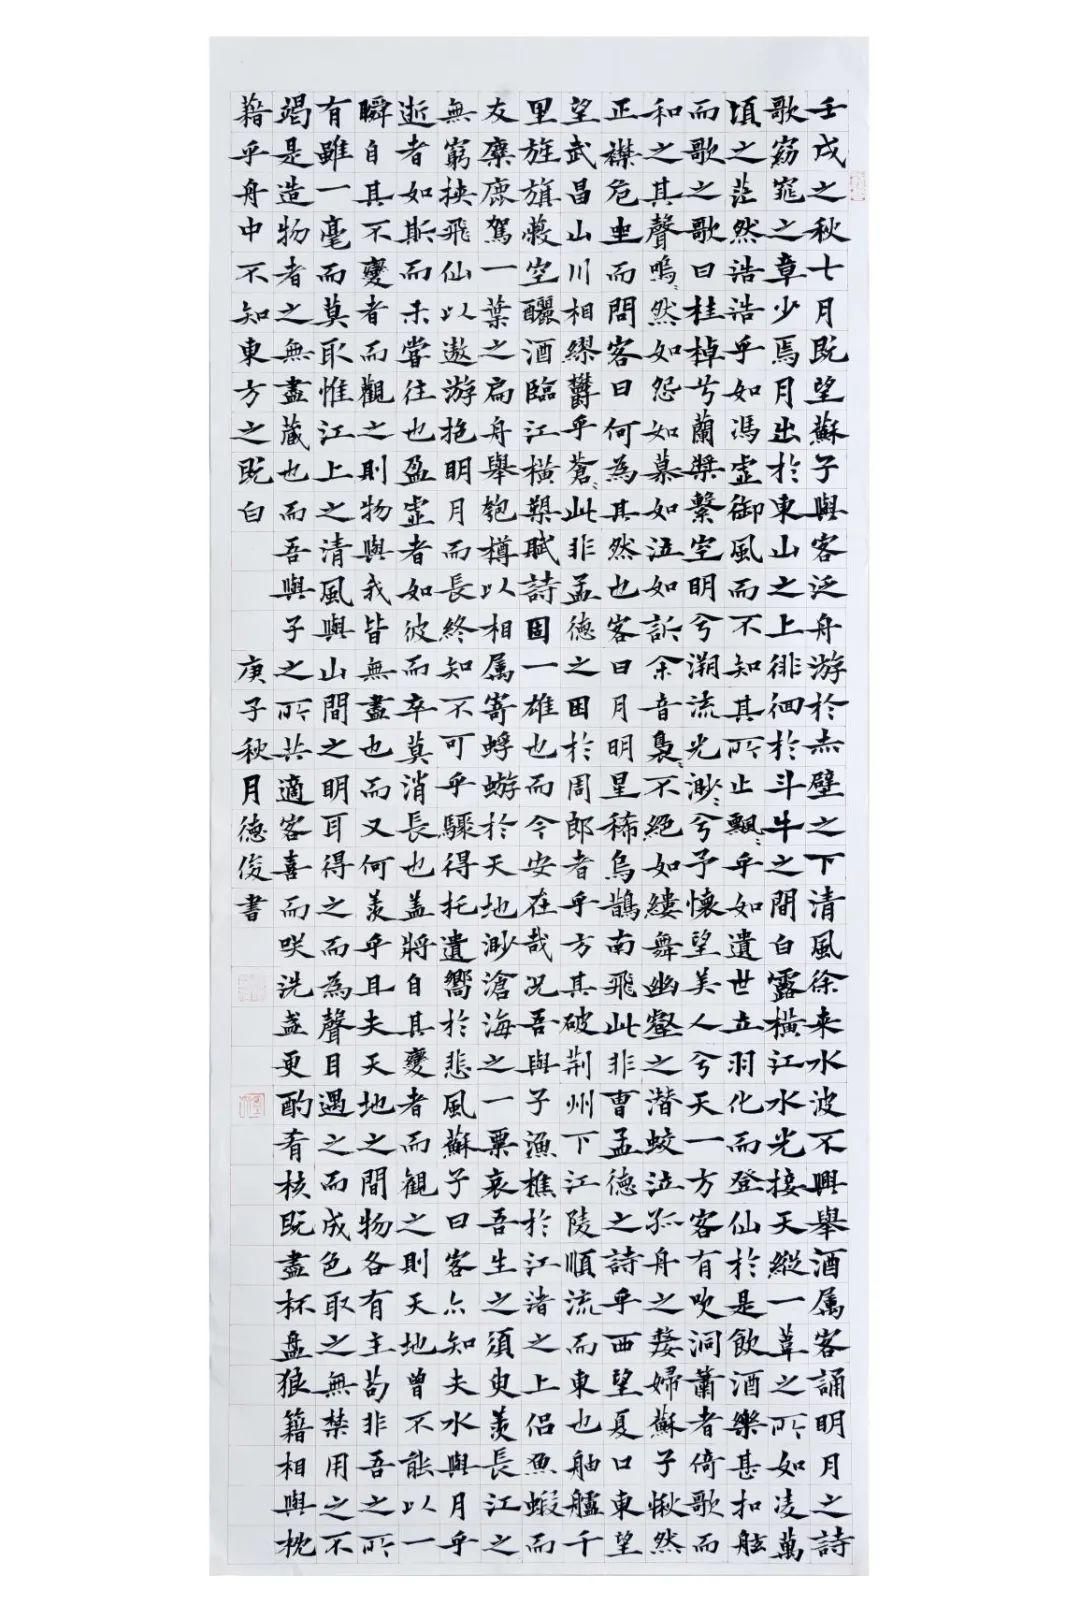 壬戌之秋七月既望蘇子與客泛舟游於赤壁之下清風徐来水波不興舉酒属客誦明月之詩
歌窈窕之章少焉月出於東山之上徘徊於斗牛之間白露橫江水光接天縱一葦之所如凌萬
頃之茫然浩浩乎如馮虛御風而不知其所止飄〻乎如遺世立羽化而登仙於是飲酒樂甚扣舷
而歌之歌曰桂棹兮蘭槳繫空明兮溯流光渺〻兮予懷望美人兮天一方客有吹洞蕭者倚歌而
和之其聲嗚〻然如怨如慕如泣如訴余音裊〻不絕如縷舞幽壑之潛蛟泣孤舟之嫠婦蘇子愀然
正襟危坐而問客曰何為其然也客曰月明星稀烏鵲南飛此非曹孟德之詩乎西望夏口東望
望武昌山川相繆鬱乎蒼〻此非孟德之困於周郎者乎方其破荆州下江陵順流而東也舳艫千
里旌旗蔽空釃酒臨江橫槊賦詩固一雄也而今安在哉况吾與子漁樵於江渚之上侣魚蝦而
友麋鹿駕一葉之扁舟舉匏樽以相属寄蜉蝣於天地渺滄海之一粟哀吾生之須臾羨長江之
無窮挾飛仙以遨游抱明月而長終知不可乎驟得托遺嚮於悲風蘇子曰客亦知夫水與月乎
逝者如斯而未嘗往也盈虛者如彼而卒莫消長也盖將自其變者而観之則天地曾不能以一
瞬自其不變者而觀之則物與我皆無盡也而又何羨乎且夫天地之間物各有主苟非吾之所
有雖一毫而莫取惟江上之清風與山間之明耳得之而為聲目遇之而成色取之無禁用之不
竭是造物者之無盡蔵也而吾與子之所共適客喜而咲洗盏更酌肴核既盡杯盘狼籍相與枕
藉乎舟中不知東方之既白
庚子秋月德俊書